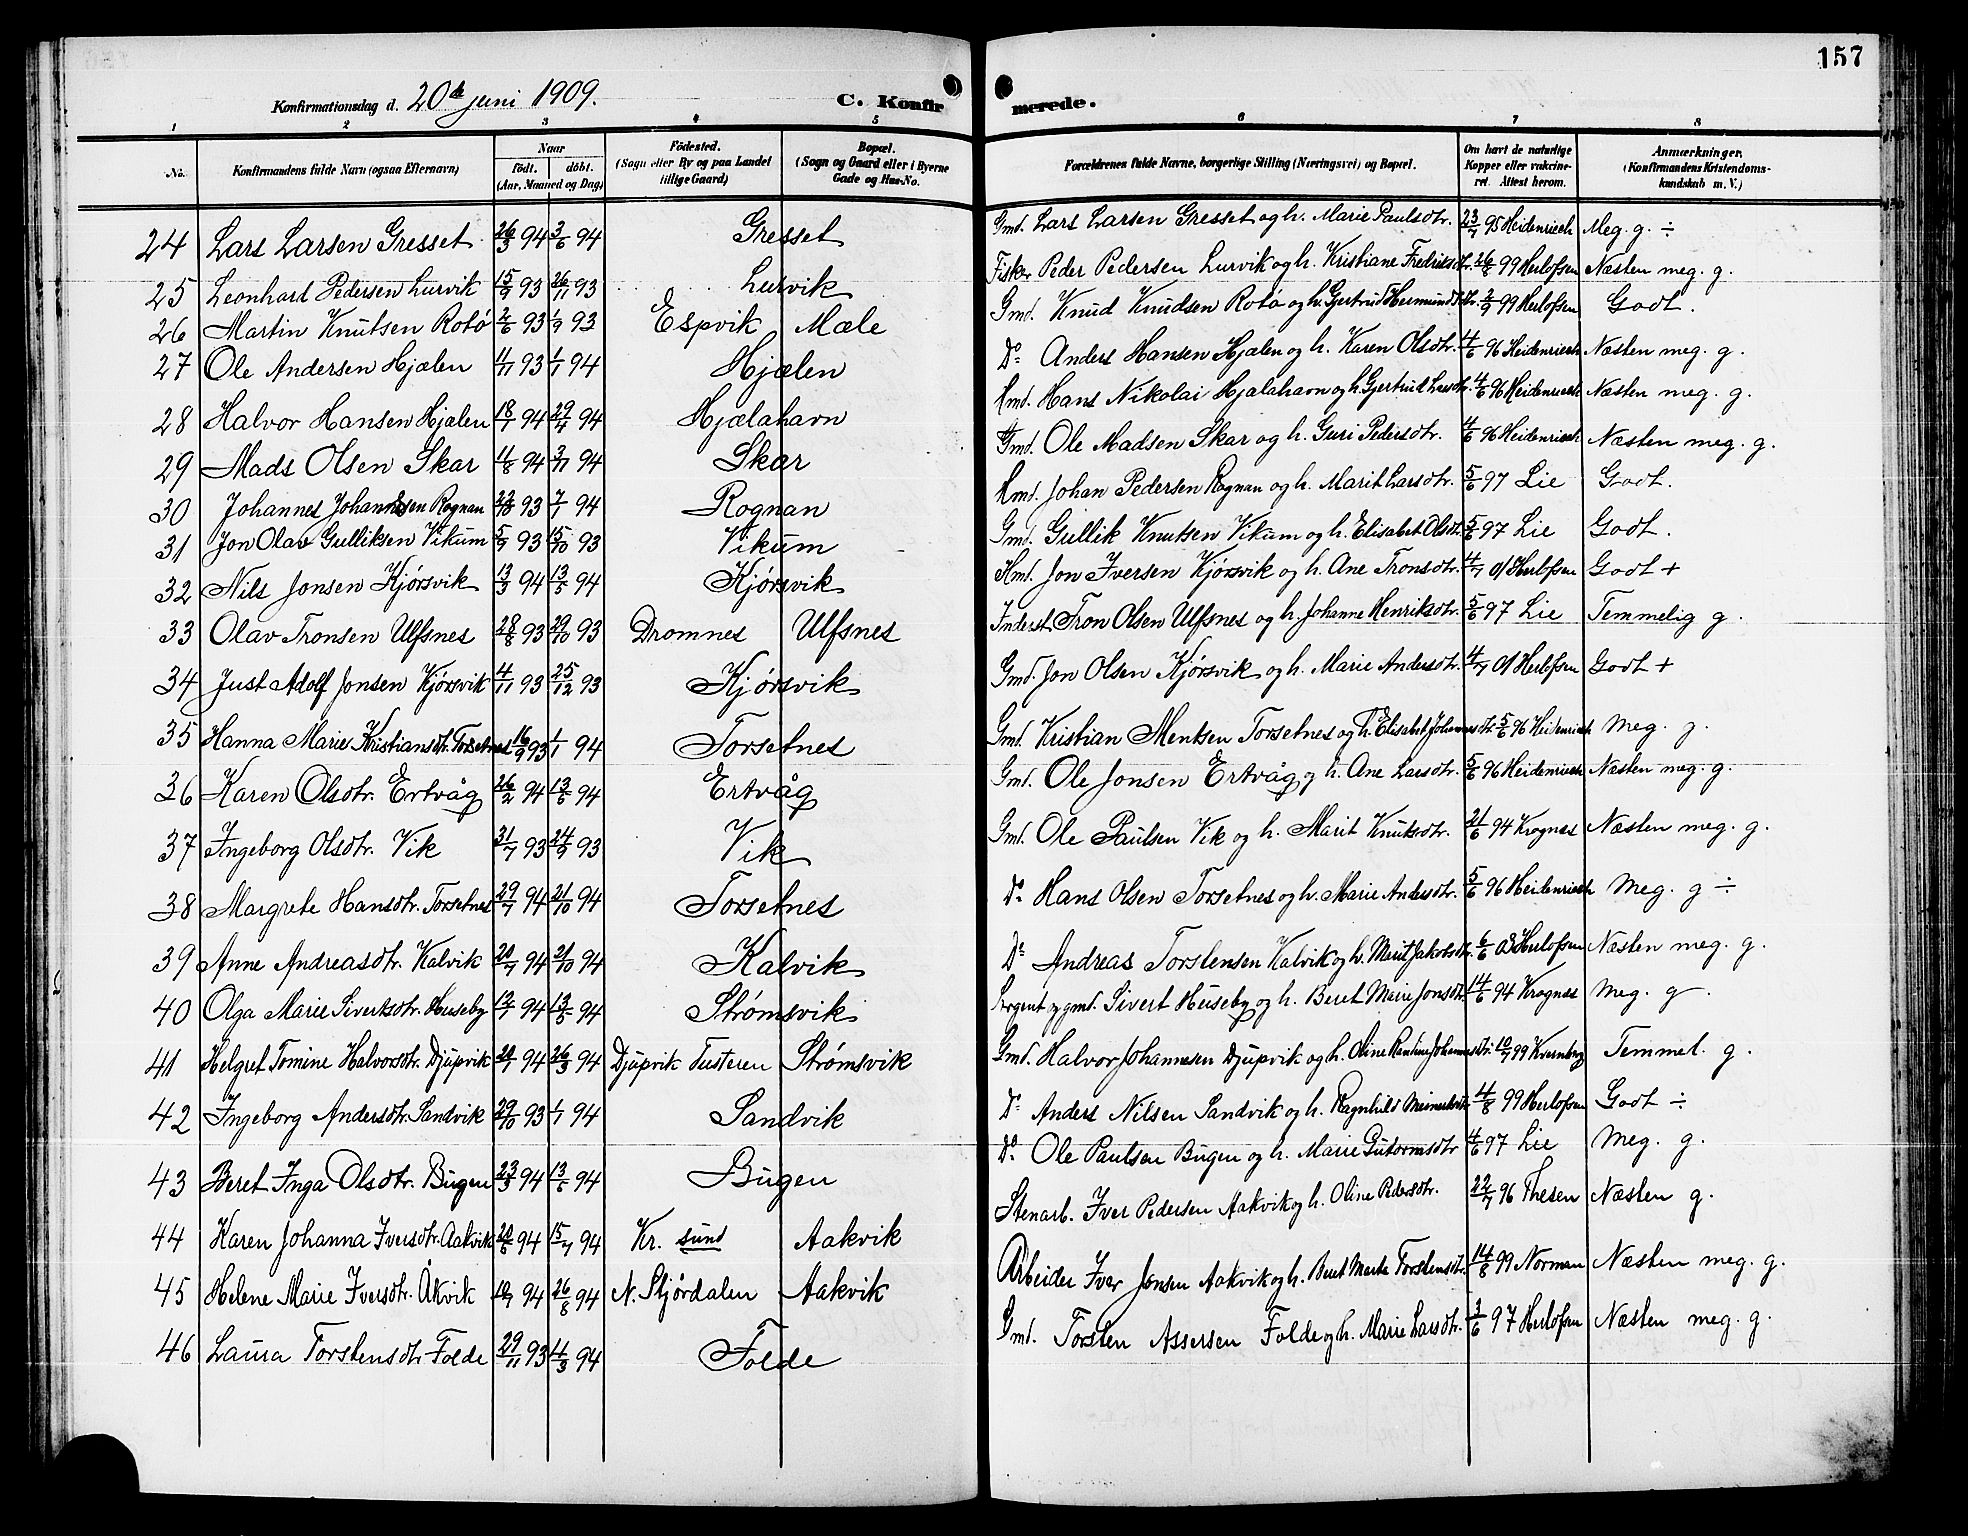 157
Konfirmationsdag d. 20de juni 1909. C. Konfirmerede.
1 2 3 4 5 6 7 8
No. Konfirmandens fulde Navn (ogsaa Efternavn) Naar födt. döbt. (Aar, Maaned og Dag) Födested. (Sogn eller By og paa Landet tillige Gaard) Bopæl. (Sogn og Gaard eller i Byerne Gade og Hus-No. Forældrenes fulde Navne, borgerlige Stilling (Næringsvei) og Bopæl. Om havt de naturlige Kopper eller vakcineret. Attest herom. Anmærkninger. (Konfirmandens Kristendomskundskab m. V.)
24 Lars Larsen Gresset 26/3 94 3/6 94 Gresset Gmd. Lars Larsen Gresset og h. Marie Paulsdtr. 23/7 95 Heidenrich Meg. g. ÷
25 Leonhart Pedersen Lurvik 15/9 93 26/11 93 Lurvik Fisker Peder Pedersen Lurvik og h. Kristiane Fredriksdtr. 26/8 99 Herlofsen Næsten meg. g.
26 Martin Knutsen Rotø 2/6 93 1/9 93 Espvik Mæle Gmd. Knud Knudsen Rotø og h. Gjertrud Hermundsdtr. 2/9 99 Herlofsen Godt.
27 Ole Andersen Hjælen 11/11 93 1/1 94 Hjælen Do Anders Hansen Hjælen og h. Karen Olsdtr. 4/6 96 Heidenrich Næsten meg. g.
28 Halvor Hansen Hjælen 18/1 94 29/4 94 Hjælahavn Hmd. Hans Nikolai Hjælahavn og h. Gjertrud Larsdtr. 4/6 96 Heidenrich Næsten meg. g.
29 Mads Olsen Skar 11/8 94 3/11 94 Skar Gmd. Ole Madsen Skar og h. Guri Pedersdtr. 4/6 96 Heidenrich Næsten meg. g.
30 Johannes Johannesen Rognan 22/10 93 7/1 94 Rognan Hmd. Johan Pedersen Rognan og h. Marit Larsdtr. 5/6 97 Lie Godt.
31 Jon Olav Gulliksen Vikum 5/9 93 15/10 93 Vikum Gmd. Gullik Knutsen Vikum og h. Elisabet Olsdtr. 5/6 97 Lie Godt.
32 Nils Jonsen Kjørsvik 13/3 94 13/5 94 Kjørsvik Hmd. Jon Iversen Kjørsvik og h. Ane Tronsdtr. 4/7 01 Herlofsen Godt +
33 Olav Tronsen Ulfsnes 28/8 93 29/10 93 Dromnes Ulfsnes Inderst Tron Olsen Ulfsnes og h. Johanne Henriksdtr. 5/6 97 Lie Temmelig g.
34 Just Adolf Jonsen Kjørsvik 4/11 93 25/12 93 Kjørsvik Gmd. Jon Olsen Kjørsvik og h. Marie Andersdtr. 4/7 01 Herlofsen Godt +
35 Hanna Marie Kristiansdtr. Torsetnes 16/9 93 1/1 94 Torsetnes Gmd. Kristian Mentsen Torsetnes og h. Elisabet Johannesdtr. 5/6 96 Heidenrich Meg. g.
36 Karen Olsdtr. Ertvåg 26/2 94 13/5 94 Ertvåg Gmd. Ole Jonsen Ertvåg og h. Ane Larsdtr. 5/6 96 Heidenrich Næsten meg. g.
37 Ingeborg Olsdtr. Vik 31/7 93 24/9 93 Vik Gmd. Ole Paulsen Vik og h. Marit Knutsdtr. 21/6 94 Krognæs Næsten meg. g.
38 Margrete Hansdtr. Torsetnes 29/7 94 21/10 94 Torsetnes Do Hans Olsen Torsetnes og h. Marie Andersdtr. 5/6 96 Heidenrich Meg. g ÷
39 Anne Andreasdtr. Kalvik 20/7 94 21/10 94 Kalvik Do Andreas Torstensen Kalvik og h. Marit Jakobsdtr. 6/6 03 Herlofsen Næsten meg. g.
40 Olga Marie Sivertsdtr. Huseby 12/1 94 13/5 94 Strømsvik Sergent og gmd. Sivert Huseby og h. Beret Marie Jonsdtr. 14/6 94 Krognæs Meg. g.
41 Helgret Tomine Halvorsdtr. Djupvik 20/1 94 26/3 94 Djupvik Tusteren Strømsvik Gmd. Halvor Johannesen Djupvik og h. Oline Pauline Johannesdtr. 10/7 99 Kvernberg Temmel. g.
42 Ingeborg Andersdtr. Sandvik 29/10 93 1/1 94 Sandvik Do Anders Nilsen Sandvik og h. Ragnhild Meinertsdtr. 4/8 99 Herlofsen Godt ÷
43 Beret Inga Olsdtr. Bugen 23/3 94 13/5 94 Bugen Do Ole Paulsen Bugen og h. Marie Gutormsdtr 4/6 97 Lie Meg. g.
44 Karen Johanna Iversdtr. Aakvik 20/5 94 15/7 94 Kr. sund Aakvik Stenarb. Iver Pedersen Aakvik og h. Oline Pedersdtr. 22/7 96 Thesen Næsten g.
45 Helene Marie Iversdtr. Åkvik 10/7 94 26/8 94 N. Stjørdalen Aakvik Arbeider Iver Jonsen Aakvik og h. Beret Marta Torstensdtr. 14/8 99 Norman Næsten meg. g.
46 Laura Torstensdtr Folde 29/11 93 4/3 94 Folde Gmd. Torsten Assersen Folde og h. Marie Larsdtr. 3/6 97 Herlofsen Næsten meg. g.